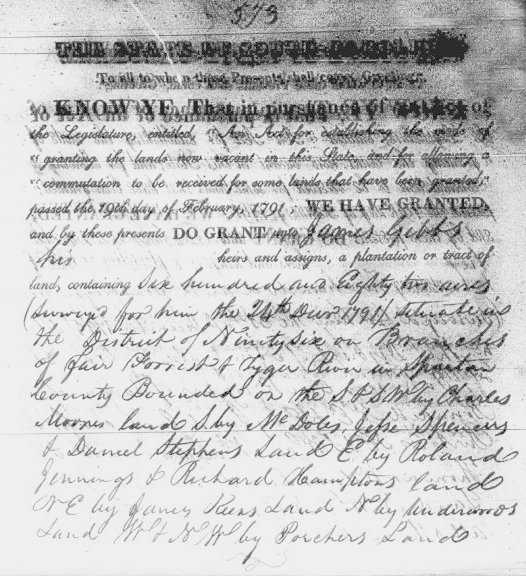 573
THE STATE OF SOUTH CAROLINA
To all to whom these Presents shall come, Greeting:
KNOW YE, That in pursuance of an Act of
the Legislature, entitled, "An Act for establishing the mode of
"granting the lands now vacant in this State, and for allowing a
"commutation to be received for some lands that have been granted,"
passed the 19th day of February, 1791; WE HAVE GRANTED,
and by these presents DO GRANT unto James Gibbs
his heirs and assigns, a plantation or tract of
land, containing Six hundred and Eighty two acres
(survey'd for him the 24th 1791) situate in
the District of Ninetysix on Branches
of Fair Forrest & Tyger River in Spartan
County Bounded on the S & S W by Charles
Moores land S. by Mc Doles, Jesse Spencers
& Daniel Stephens Land E by Roland
Jennings & Richard Hamptons land
N E by Land N by Underwoods
Land W & N W by Porchers Land